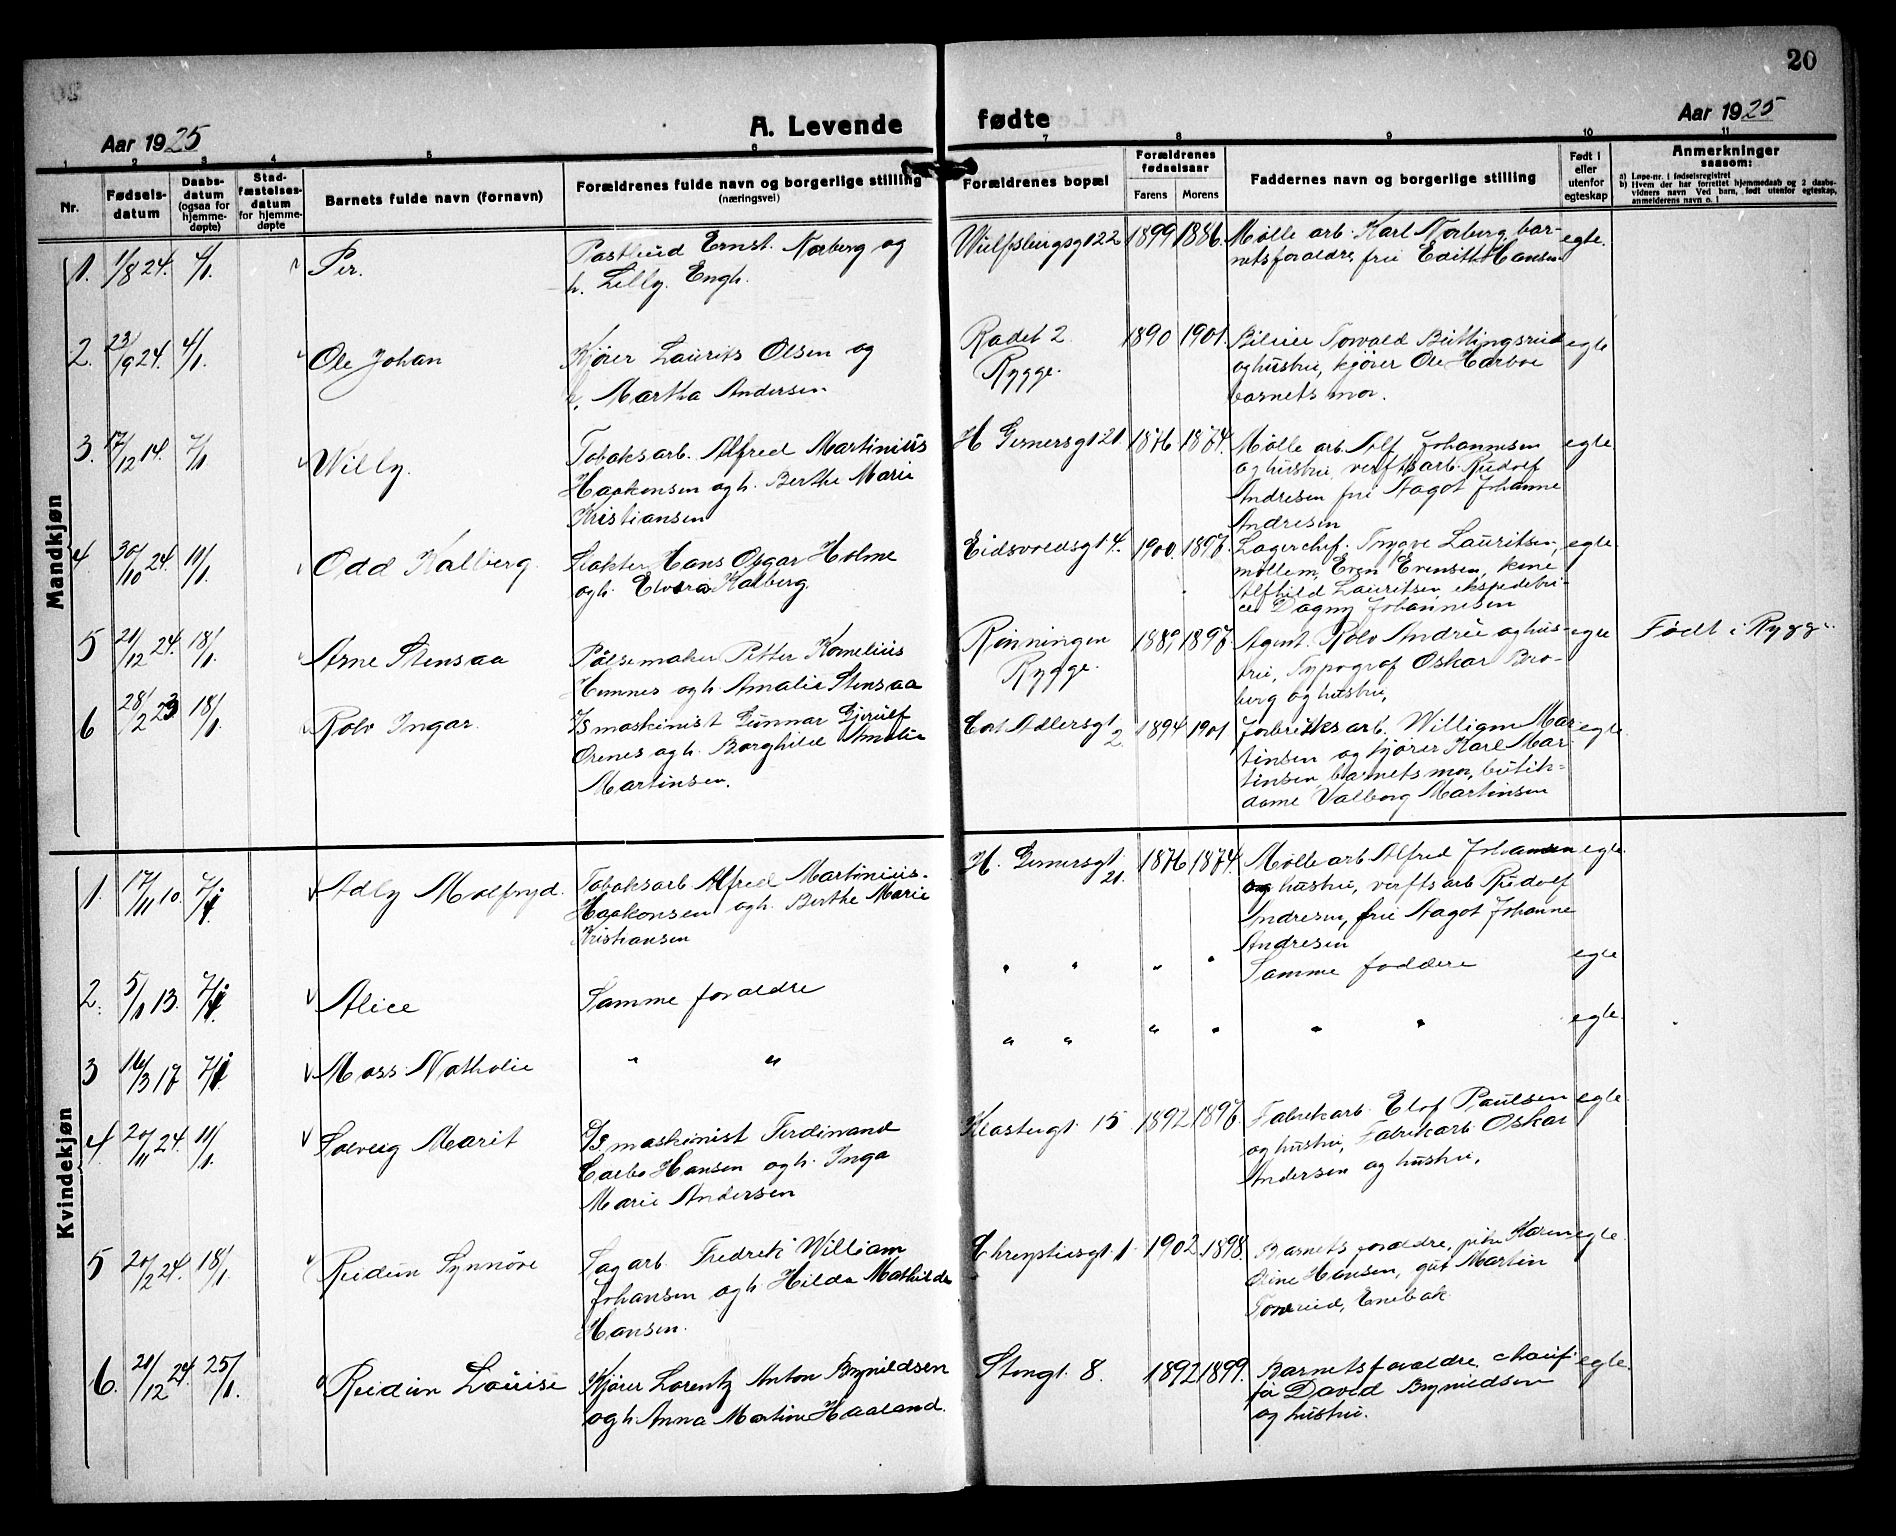 20
Aar 1925
A. Levende fødte
Aar 1925
1 2 3 4 5 6 7 8 9 10 11
Nr.
Fødsels-
datum
Daabs-
datum
(ogsaa for
hjemme-
døpte)
Stad-
fæstelses-
datum
for hjemme-
døpte
Barnets fulde navn (fornavn)
Forældrenes fulde navn og borgerlige stilling
(næringsvei)
Forældrenes bopæl
Forældrenes
fødselsaar
Farens Morens
Faddernes navn og borgerlige stilling
Født i
eller
utenfor
egteskap
Anmerkninger
saasom:
a) Løpe-nr. i fødselsregistret
b) Hvem der har forrettet hjemmedaab og 2 daabs-
vidners navn Ved barn, født utenfor egteskap,
anmelderens navn o. l
Mandkjøn
1. 1/8 24. 4/1. Per.
Postbud Ernst Norberg og
h. Lilly Engh.
1899 1886.
Mølle arb. Karl Norberg, bar-
netsforældre, frk Edith Hansen
egte.
2. 23/9 24. 4/1. Ole Johan
Kjører Laurits Olsen og
h. Martha Andersen
Radet 2
Rygge.
1890 1901.
Bileier Torvald Buttingsrud
og hustru, kjører Ole Harboe
barnets mor.
egte
3. 17/12 14. 7/1 Willy.
Tobaksarb. Alfred Martinius
Haakonsen og h. Berthe Marie
Kristiansen
H Gernersgt 21. 1876 1874.
Mølle arb. Alf Johannesen
og hustru, verfts arb. Rudolf
Andresen frk Aagot Johanne
Andresen
egte.
4 30/10 24. 11/1. Odd Kalberg.
Slakter Hans Oskar Holme
og h. Elvera Kalberg
Eidsvoldsgt 4. 1900. 1897.
Lagerchef. Trygve Lauritsen,
møllem. Even Evensen, kone
Alfhild Lauritsen, ekspedetri-
ce Dagny Johannesen
egte.
5 21/12 24. 18/1. Arne Stensaa
Pølsemaker Petter Kornelius
Hemnes og h. Amalie Stensaa
Rønningen
Rygge.
1889 1897
Agent. Rolv Andrée og hus-
tru, Typograf Oskar Bro-
berg og hustru,
egte
Født i Rygge.
6 28/2 23 18/1. Rolv Ingar.
Maskinist Gunnar Gjerulf
Ørenes og h. Borghild Amalie
Martinsen.
Cort Adlersgt
2
1894 1901
Fabriksarb. William Mar-
tinsen og kjører Karl Mar-
tinsen, barnets mor, butik-
dame Valborg Martinsen
egte.
Kvindekjøn
1. 17/11 10. 7/1 Adly Malfryd.
Tobaksarb Alfred Martinius
Haakonsen og h. Berthe Marie
Kristiansen
H. Gernersgt.
21.
1876 1874.
Mølle arb Alfred Johansen
og hustru, verfts arb Rudolf
Andresen, frk Aagot Johanne
Andresen
egte.
2. 5/1 13. 7/1. Alice
Samme foraldre
" " " "
Samme faddere
egte
3 16/3 17 7/1 Mass Nathalie
" "
" " " " " "
egte.
4 20/11 24. 11/1. Solveig Marit
Maskinist Ferdinand
Carlo Hansen og h. Inga
Marie Andersen
Klostergt. 15. 1892 1897.
Fabrikarb. Elof Paulsen
og hustru, Fabrikarb Oskar
Andersen og hustru,
egte
5 20/2 24. 18/1. Reidun Synnøve
Sagarb Fredrik William
Johansen og h Hilda Mathilde
Hansen.
Chrystiesgt. 1 1902 1898.
Barnets foraldre, pike Karen
Oline Hansen, gut Martin
Enebak
egte.
6. 21/12 24. 25/1. Reidun Louise
Kjører Lorentz Anton Brynildsen
og h. Anna Martine Haaland.
Stengt. 8. 1892 1899.
Barnetsforaldre, chauf-
før David Brynildsen
og hustru.
egte.